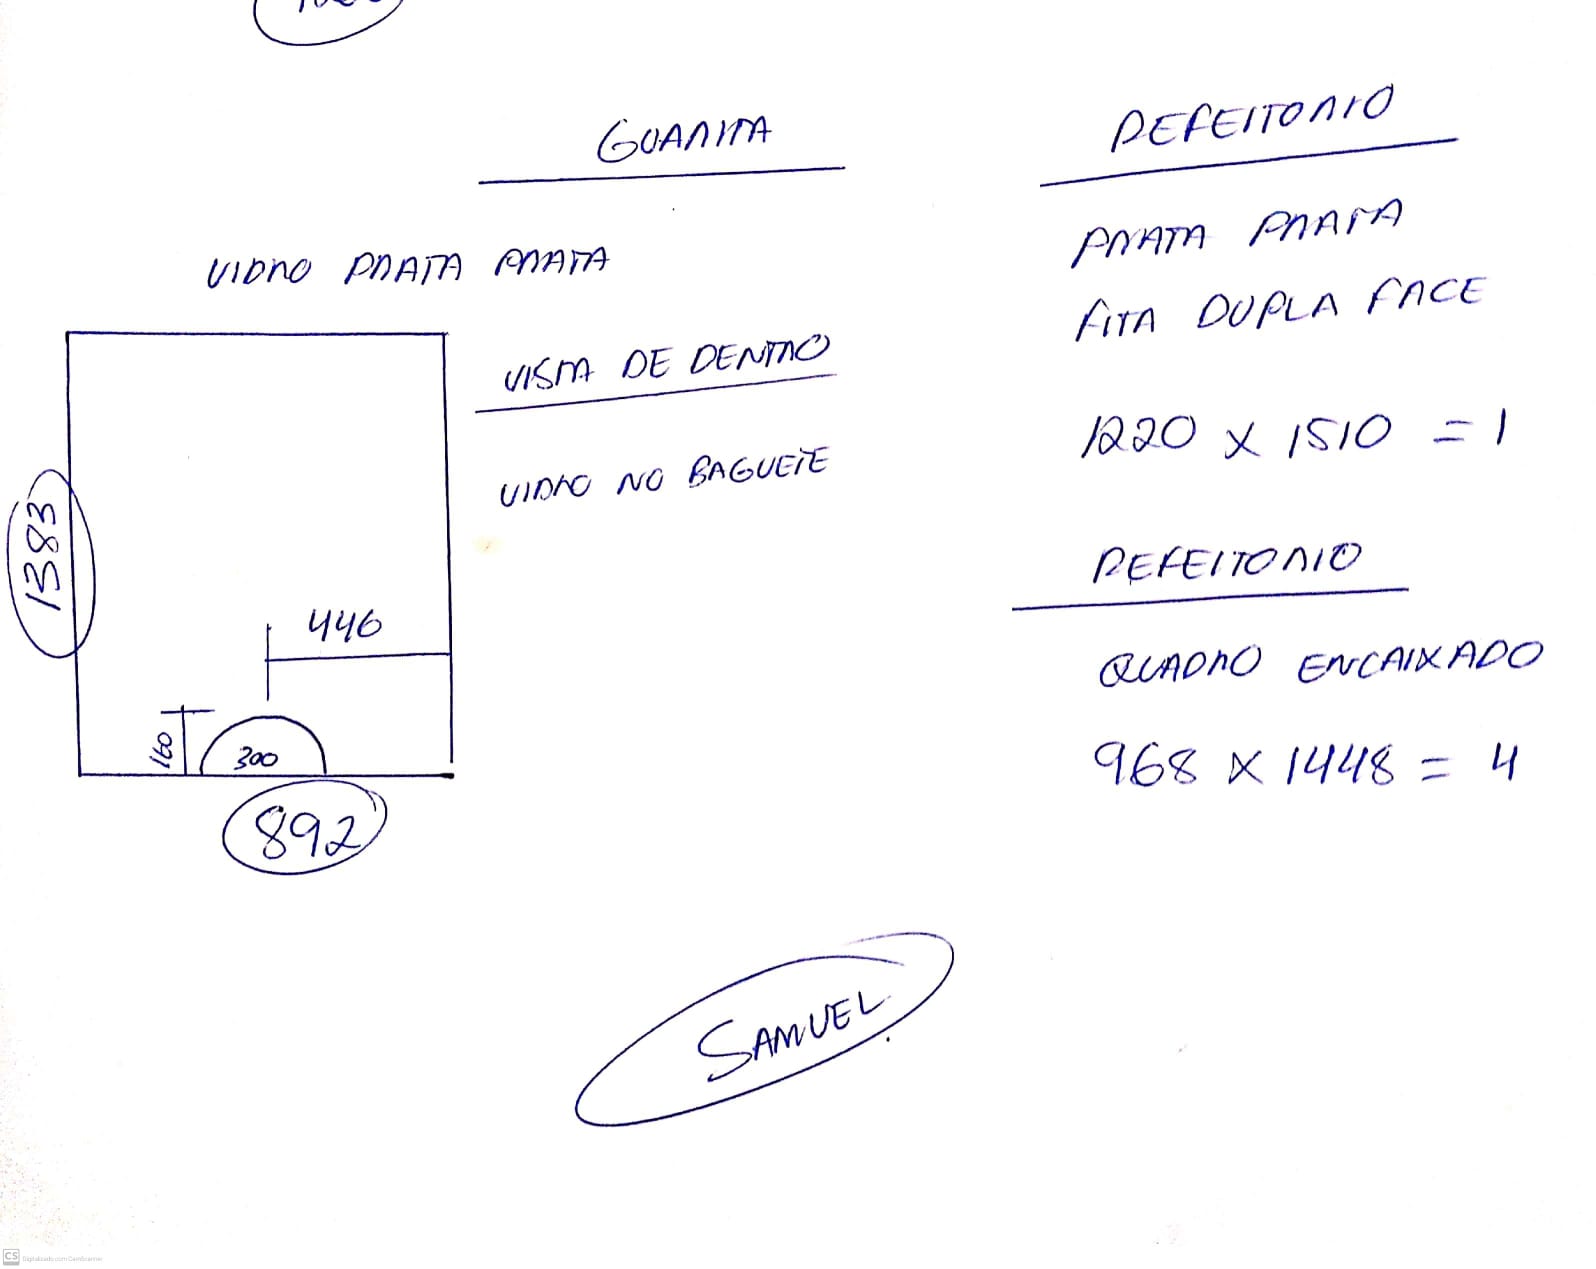 GUARITA
VIDRO PRATA PRATA
VISTA DE DENTRO
VIDRO NO BAGUETE
1383
446
160
300
892
REFEITORIO
PRATA PRATA
FITA DUPLA FACE
1220 X 1510 = 1
REFEITORIO
QUADRO ENCAIXADO
968 X 1448 = 4
SAMUEL
CS Digitalizado com CamScanner